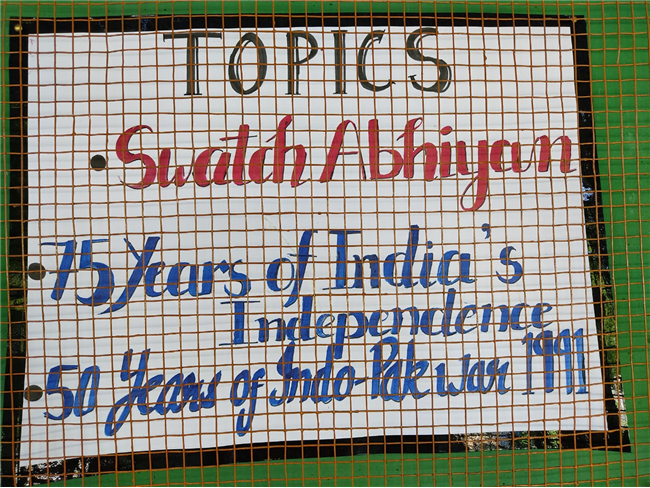 TOPICS
• Swatch Abhiyan
• 75 Years of India's
Independence
• 50 Years of Indo-Pak war 1991